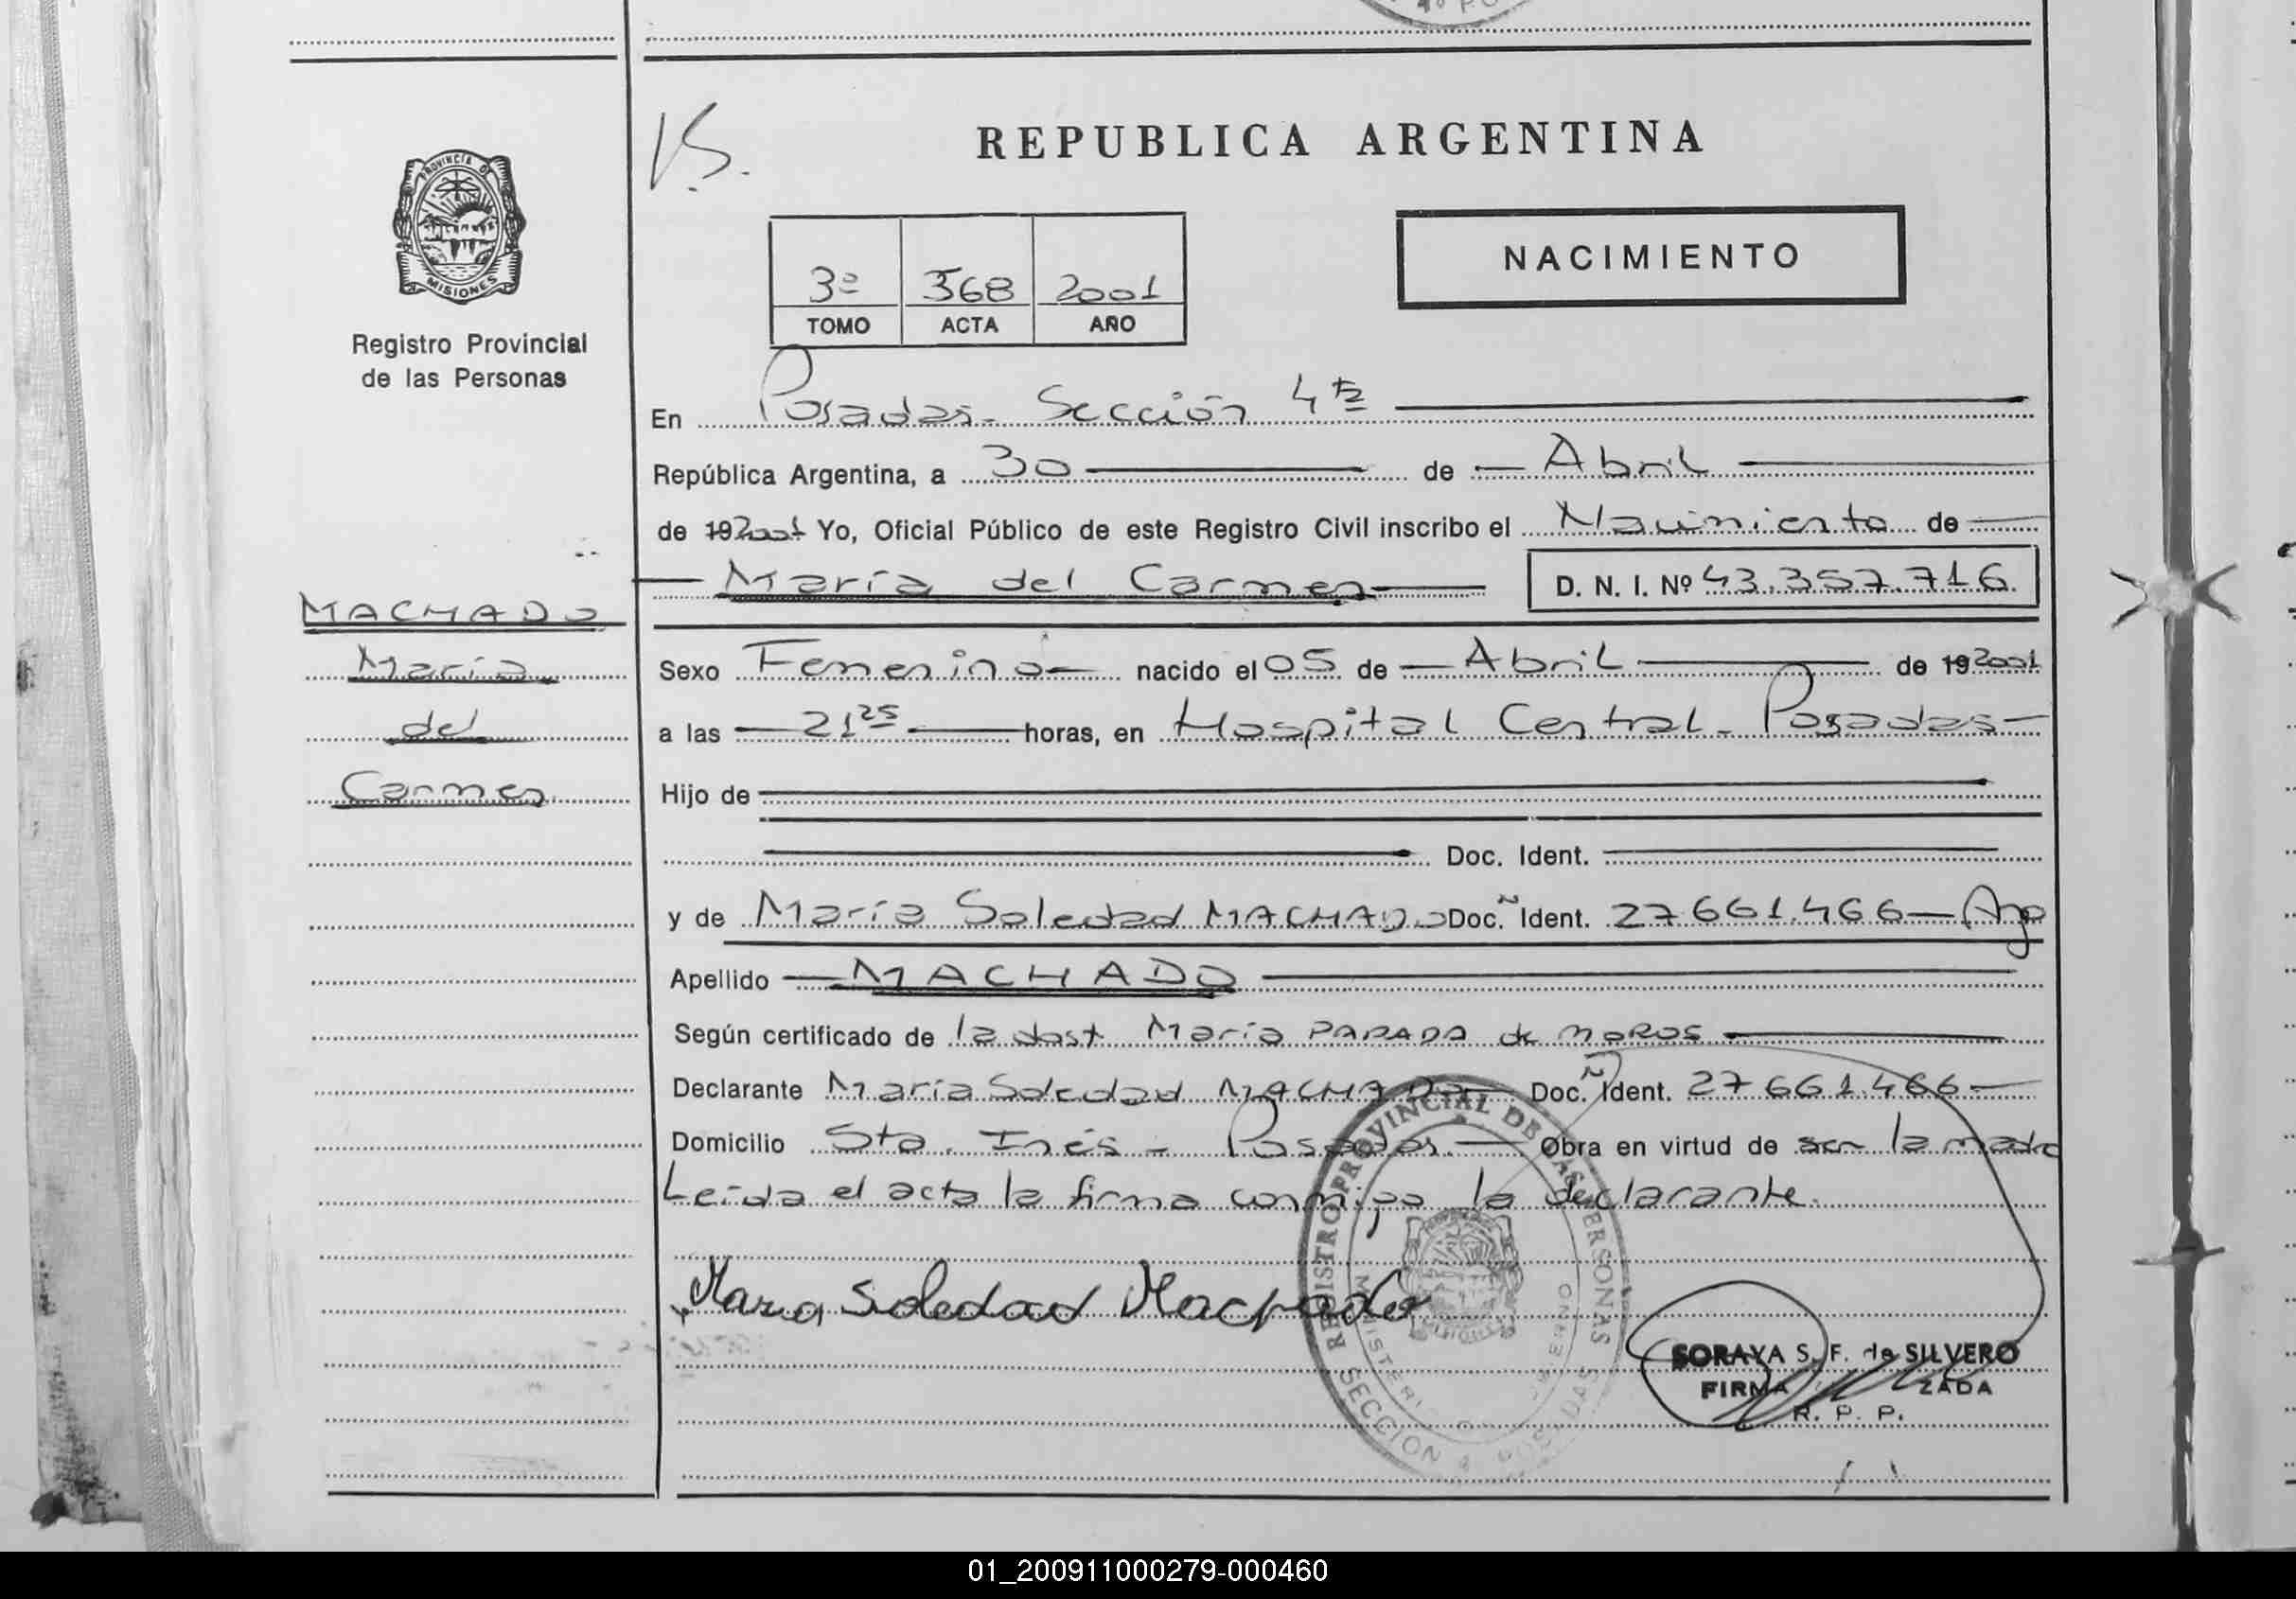 V.S.
REPUBLICA ARGENTINA
PROVINCIA DE
MISIONES
NACIMIENTO
3º 368 2001
TOMO ACTA AÑO
Registro Provincial
de las Personas
En Posadas - Sección 4ta
República Argentina, a 30 de Abril
de 192001 Yo, Oficial Público de este Registro Civil inscribo el Nacimiento de
María del Carmen D. N. I. Nº 43.357.716.
MACHADO
María
del
Carmen
Sexo Femenino nacido el 05 de Abril de 192001
a las 21 25 horas, en Hospital Central - Posadas
Hijo de
Doc. Ident.
y de María Soledad MACHADO Doc. Ident. 27 661.466 - Arg
Apellido MACHADO
Según certificado de la dost María PARADA de MOROS
Declarante María Soledad MACHADO Doc. Ident. 27 661.466
Domicilio Sta. Inés - Posadas. Obra en virtud de ser la madre
Leida el acta la firma conmigo la declarante.
Maria Soledad Machado
REGISTRO PROVINCIAL DE LAS PERSONAS
SECCION 4 POSADAS
SORAYA S. F. de SILVERO
FIRMA ZADA
R. P. P.
01_200911000279-000460